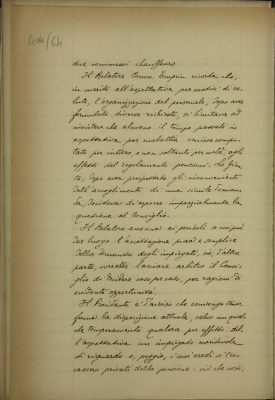 due commessi chauffeurs.
Il Relatore comm. ricorda che,
in merito all'aspettativa per motivi di sa-
lute, l'organizzazione del personale, dopo aver
formulato diverse richieste, si limitava ad
insistere che almeno il tempo passato in
aspettativa per malattia venisse compu-
tato per intero e non soltanto per metà, agli
effetti del regolamento pensioni. La Giun-
ta, dopo aver prospettato gli inconvenienti
dell'accoglimento di una simile doman-
da desidera di esporre imparzialmente la
questione al Consiglio.
Il Relatore accenna ai pericoli a cui può
dar luogo l'accettazione pura e semplice
della domanda degli impiegati, né, d'altra
parte, vorrebbe lasciare arbitro il Consi-
glio di decidere caso per caso, per ragioni di
evidente opportunità.
Il Presidente è d'avviso che convenga tener
ferma la disposizione attuale, salvo un qual-
che temperamento, qualora per effetto del-
l'aspettativa un impiegato meritevole
di riguardo o, peggio, i suoi eredi o
venissero privati della pensione: ciò che